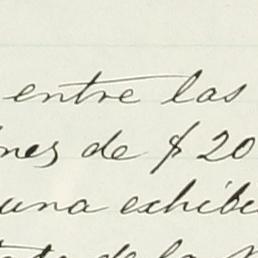 entre las
nes de $ 20
una exhibi
de la